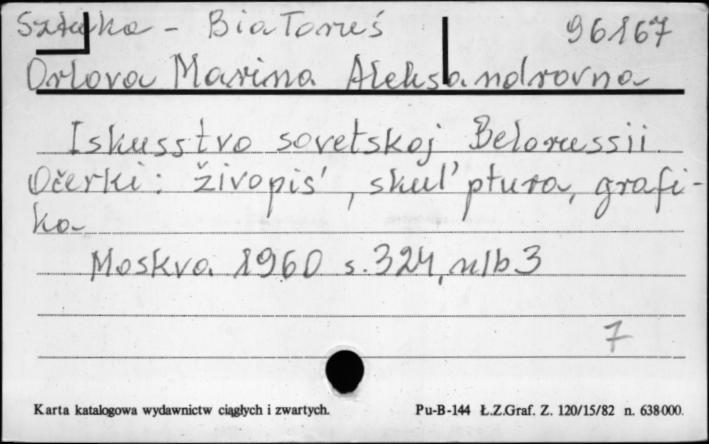 Sztuka - Białoruś 96167
Orlova Marina Aleksandrovna
Iskusstvo sovetskoj Belorussii.
Očerki: živopis', skul'ptura, grafi-
ka
Moskva 1960 s. 324, nlb 3
7
Karta katalogowa wydawnictw ciągłych i zwartych. Pu-B-144 Ł.Z.Graf. Z. 120/15/82 n. 638000.